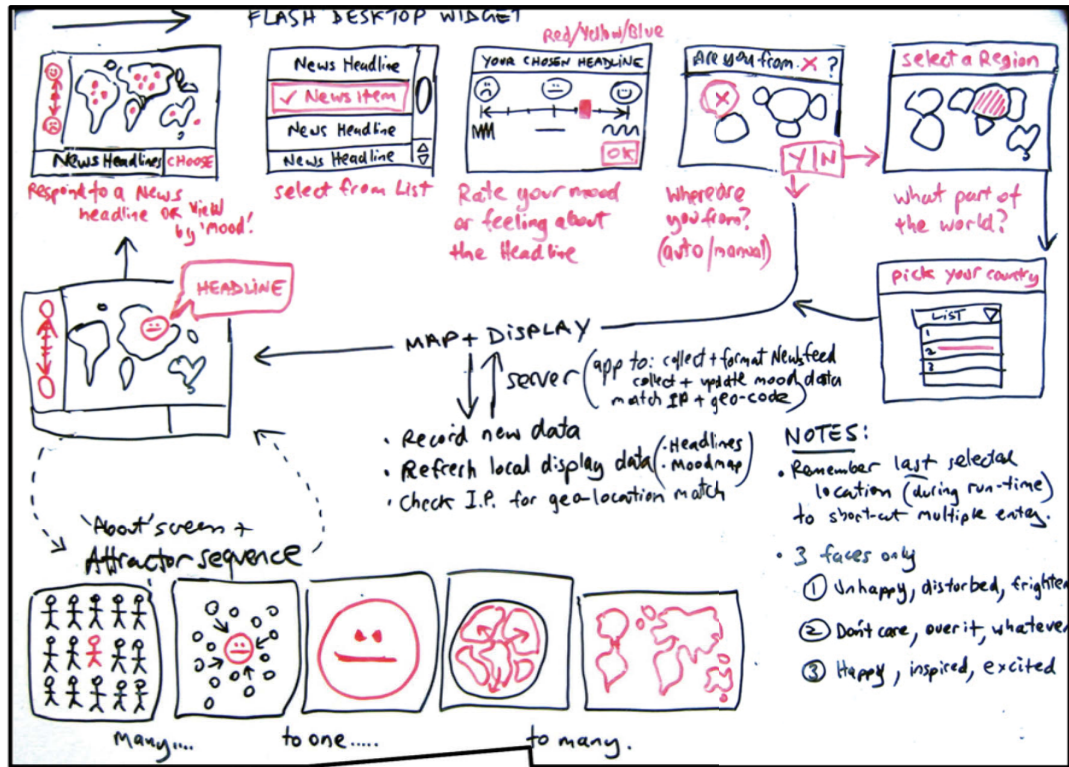 FLASH DESKTOP WIDGET
News Headlines CHOOSE
Respond to a News
headline or view
by 'mood'!
News Headline
✓ News Item
News Headline
News Headline
select from List
Red/Yellow/Blue
YOUR CHOSEN HEADLINE
OK
Rate your mood
or feeling about
the Headline
Are you from X ?
X
Y|N
Where are
you from?
(auto/manual)
select a Region
What part of
the world?
pick your country
LIST
1
2
3
HEADLINE
MAP + DISPLAY
server (app to: collect + format Newsfeed
collect + update mood data
match IP + geo-code)
• Record new data
• Refresh local display data (• Headlines
• Moodmap)
• Check I.P. for geo-location match
NOTES:
• Remember last selected
location (during run-time)
to short-cut multiple entry.
• 3 faces only
① Unhappy, distorbed, frighten
② Don't care, over it, whatever
③ Happy, inspired, excited
'About' screen +
Attractor sequence
Many....
to one.....
to many.